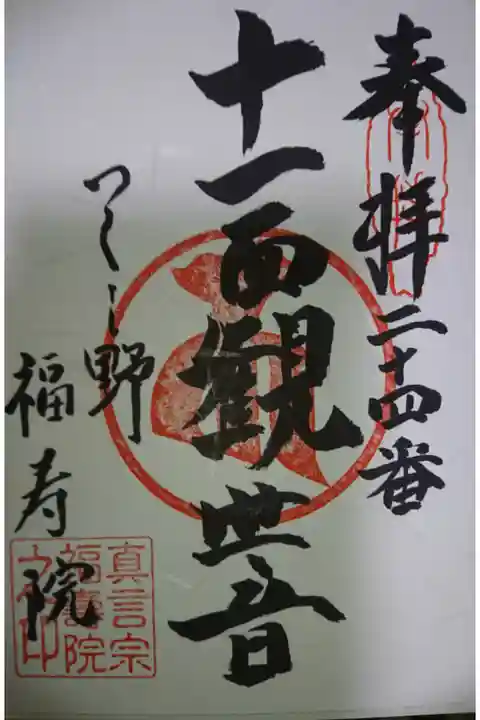 奉拝
二十四番
十一面観世音
つくし野
福寿院
真言宗
福壽院
之印